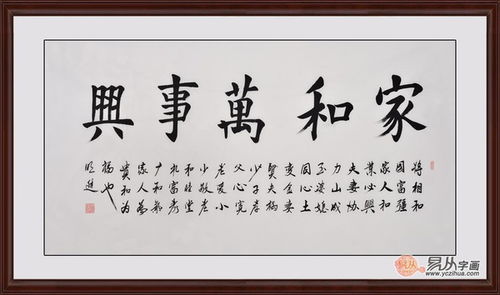 家和萬事興
將相和
國富強
家人和
業必興
夫妻協
力山成
玉婆媳
同心土
變金妻
賢夫禍
少子孝
父心寬
老愛小
少敬老
和睦堂
富
和氣
家人為
貴和為
福也
易从字画
www.yczihua.com